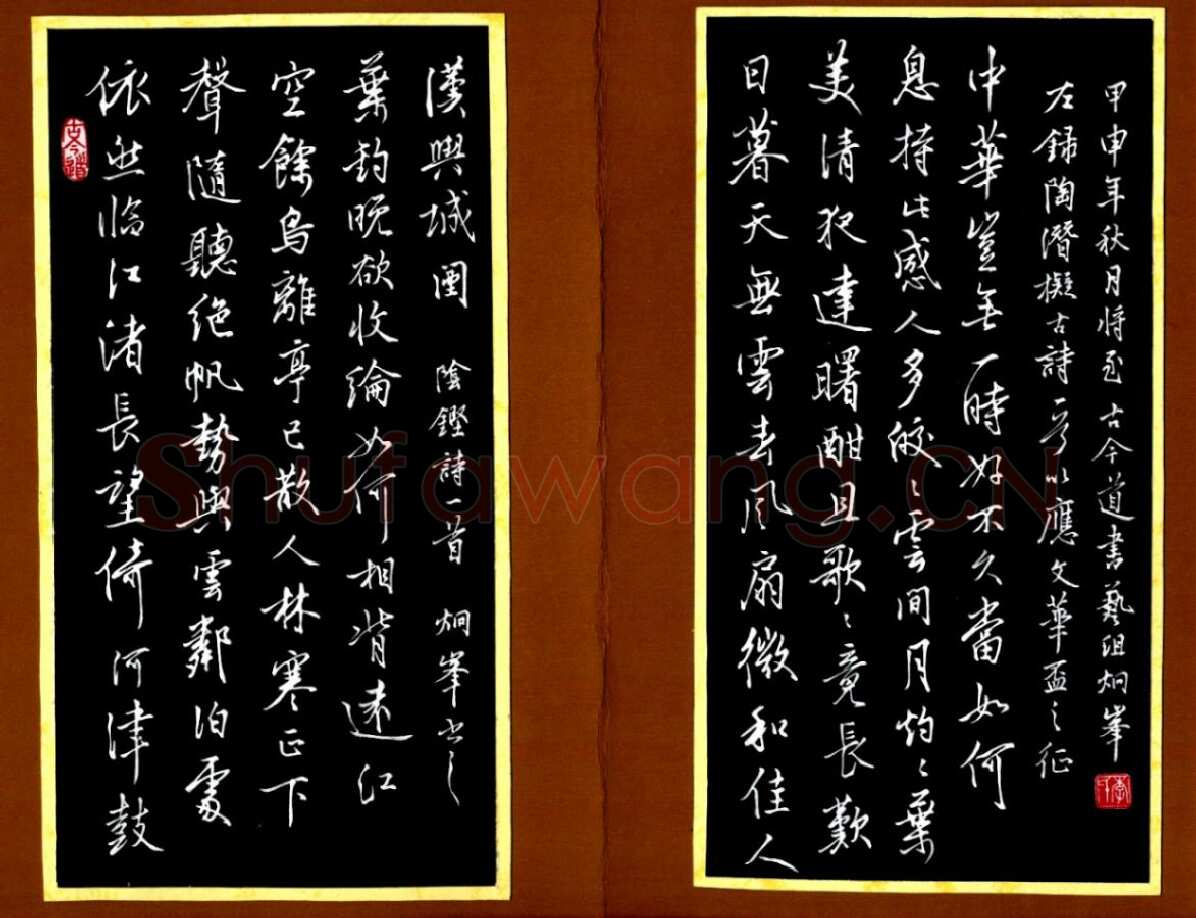 依然臨江渚長望倚河津鼓
聲隨聽絕帆勢與雲鄰泊處
空餘鳥離亭已散人林寒正下
葉釣晚欲收綸如何相背遠江
漢與城闉 陰鏗詩一首 炯峯書之
古今道
日暮天無雲春風扇微和佳人
美清夜達曙酣且歌〻竟長歎
息持此感人多皎〻雲間月灼〻葉
中華豈無一時好不久當如何
左錄陶潛擬古詩一首以應文華盃之征
甲申年秋月將至古今道書藝組炯峯
Shufawang.CN